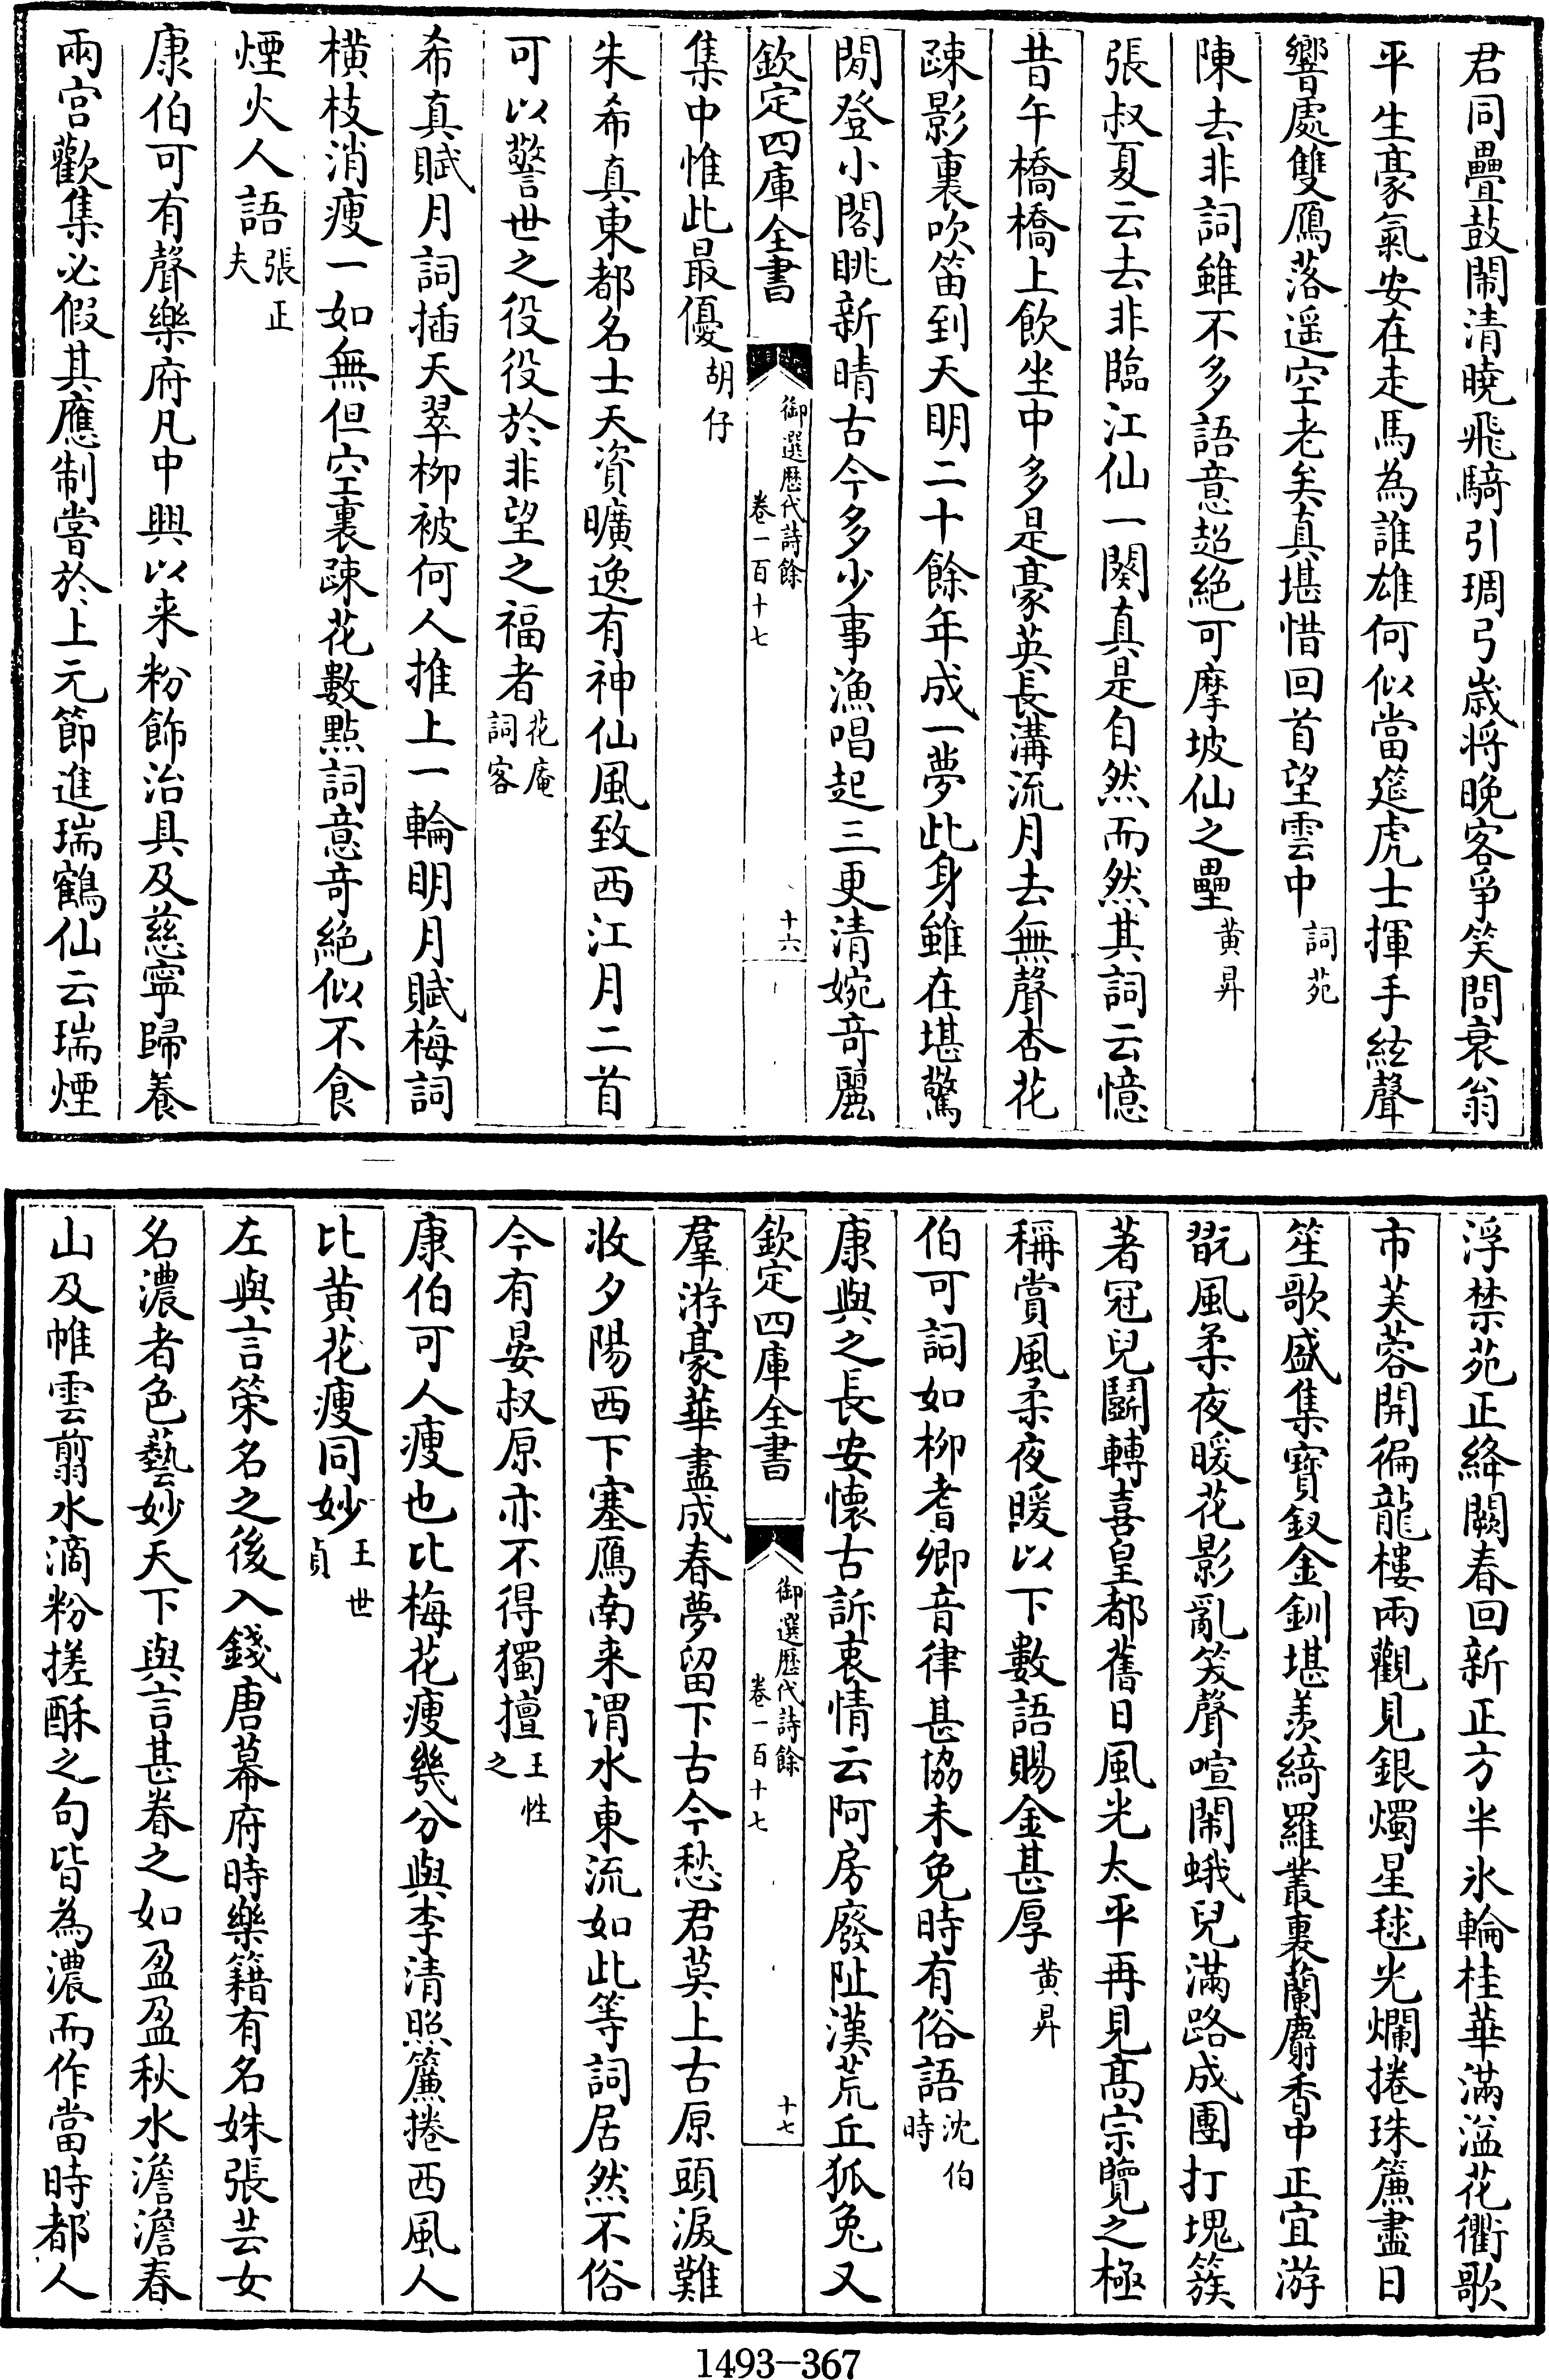 君同疊鼓閙清曉飛騎引琱弓歳将晚客爭笑問衰翁
平生豪氣安在走馬為誰雄何似當筵虎士揮手絃聲
響處雙鴈落遥空老矣真堪惜回首望雲中詞苑
陳去非詞雖不多語意超絶可摩坡仙之壘黄昇
張叔夏云去非臨江仙一闋真是自然而然其詞云憶
昔午橋橋上飲坐中多是豪英長溝流月去無聲杏花
疎影裏吹笛到天明二十餘年成一夢此身雖在堪驚
閒登小閣眺新晴古今多少事漁唱起三更清婉竒麗
欽定四庫全書 御選歴代詩餘 卷一百十七 十六
集中惟此最優胡仔
朱希真東都名士天資曠逸有神仙風致西江月二首
可以警世之役役於非望之福者花庵詞客
希真賦月詞插天翠柳被何人推上一輪明月賦梅詞
横枝消瘦一如無但空裏疎花數點詞意竒絶似不食
煙火人語張正夫
康伯可有聲樂府凡中興以来粉飾治具及慈寧歸養
兩宫歡集必假其應制嘗於上元節進瑞鶴仙云瑞煙
浮禁苑正絳闕春回新正方半氷輪桂華滿溢花衢歌
市芙蓉開徧龍樓兩觀見銀燭星毬光爛捲珠簾盡日
笙歌盛集寶釵金釧堪羡綺羅叢裏蘭麝香中正宜游
翫風柔夜暖花影亂笑聲喧閙蛾兒滿路成團打塊簇
著冠兒鬬轉喜皇都舊日風光太平再見高宗覽之極
稱賞風柔夜暖以下數語賜金甚厚黄昇
伯可詞如柳耆卿音律甚協未免時有俗語沈伯時
康與之長安懷古訴衷情云阿房廢阯漢荒丘狐兔又
欽定四庫全書 御選歴代詩餘 卷一百十七 十七
羣游豪華盡成春夢留下古今愁君莫上古原頭淚難
收夕陽西下塞鴈南来渭水東流如此等詞居然不俗
今有晏叔原亦不得獨擅王性之
康伯可人瘦也比梅花瘦幾分與李清照簾捲西風人
比黄花瘦同妙王世貞
左與言策名之後入錢唐幕府時樂籍有名姝張芸女
名濃者色藝妙天下與言甚眷之如盈盈秋水澹澹春
山及帷雲翦水滴粉搓酥之句皆為濃而作當時都人
1493-367